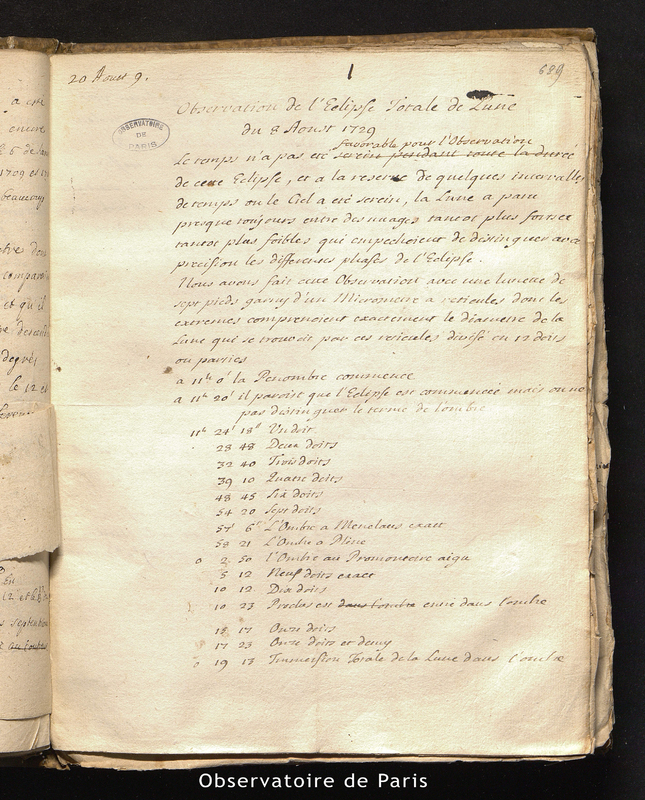 20 Aoust 9.
1
689
OBSERVATOIRE DE PARIS
Observation de l'Eclipse Totale de Lune
du 8 Aoust 1729
favorable pour l'Observation
Le temps n'a pas eté serein pendant toute la durée
de cette Eclipse, et a la reserve de quelques intervalles
de temps ou le Ciel a eté serein, la Lune a paru
presque toujours entre des nuages tantot plus forts et
tantot plus foibles qui empechoient de distinguer avec
precision les differentes phases de l'Eclipse.
Nous avons fait cette Observation avec une lunette de
sept pieds garny d'un Micrometre a reticules dont les
extremes comprenoient exactement le diametre de la
Lune qui se trouvoit par ces reticules divisé en 12 doits
ou parties
a 11h 0' la Penombre commence
a 11h 20' il paroist que l'Eclipse est commencée mais on ne
pas distinguer le terme de l'ombre
11h 24' 18" Un doit
28 48 Deux doits
32 40 Trois doits
39 10 Quatre doits
48 45 Six doits
54 20 Sept doits
57 6 L'Ombre a Menelaus exact
58 21 L'Ombre a Pline
0 2 50 l'Ombre au Promontoire aigu
5 12 Neuf doits exact
10 12 Dix doits
10 23 Proclus est dans l'ombre entré dans l'ombre
15 17 Onze doits
17 23 Onze doits et demy
0 19 13 Immersion Totale de la Lune dans l'ombre
a eté
encore
1709 et
beaucoup
et qu'il
degrés
le 12 et
Observatoire de Paris